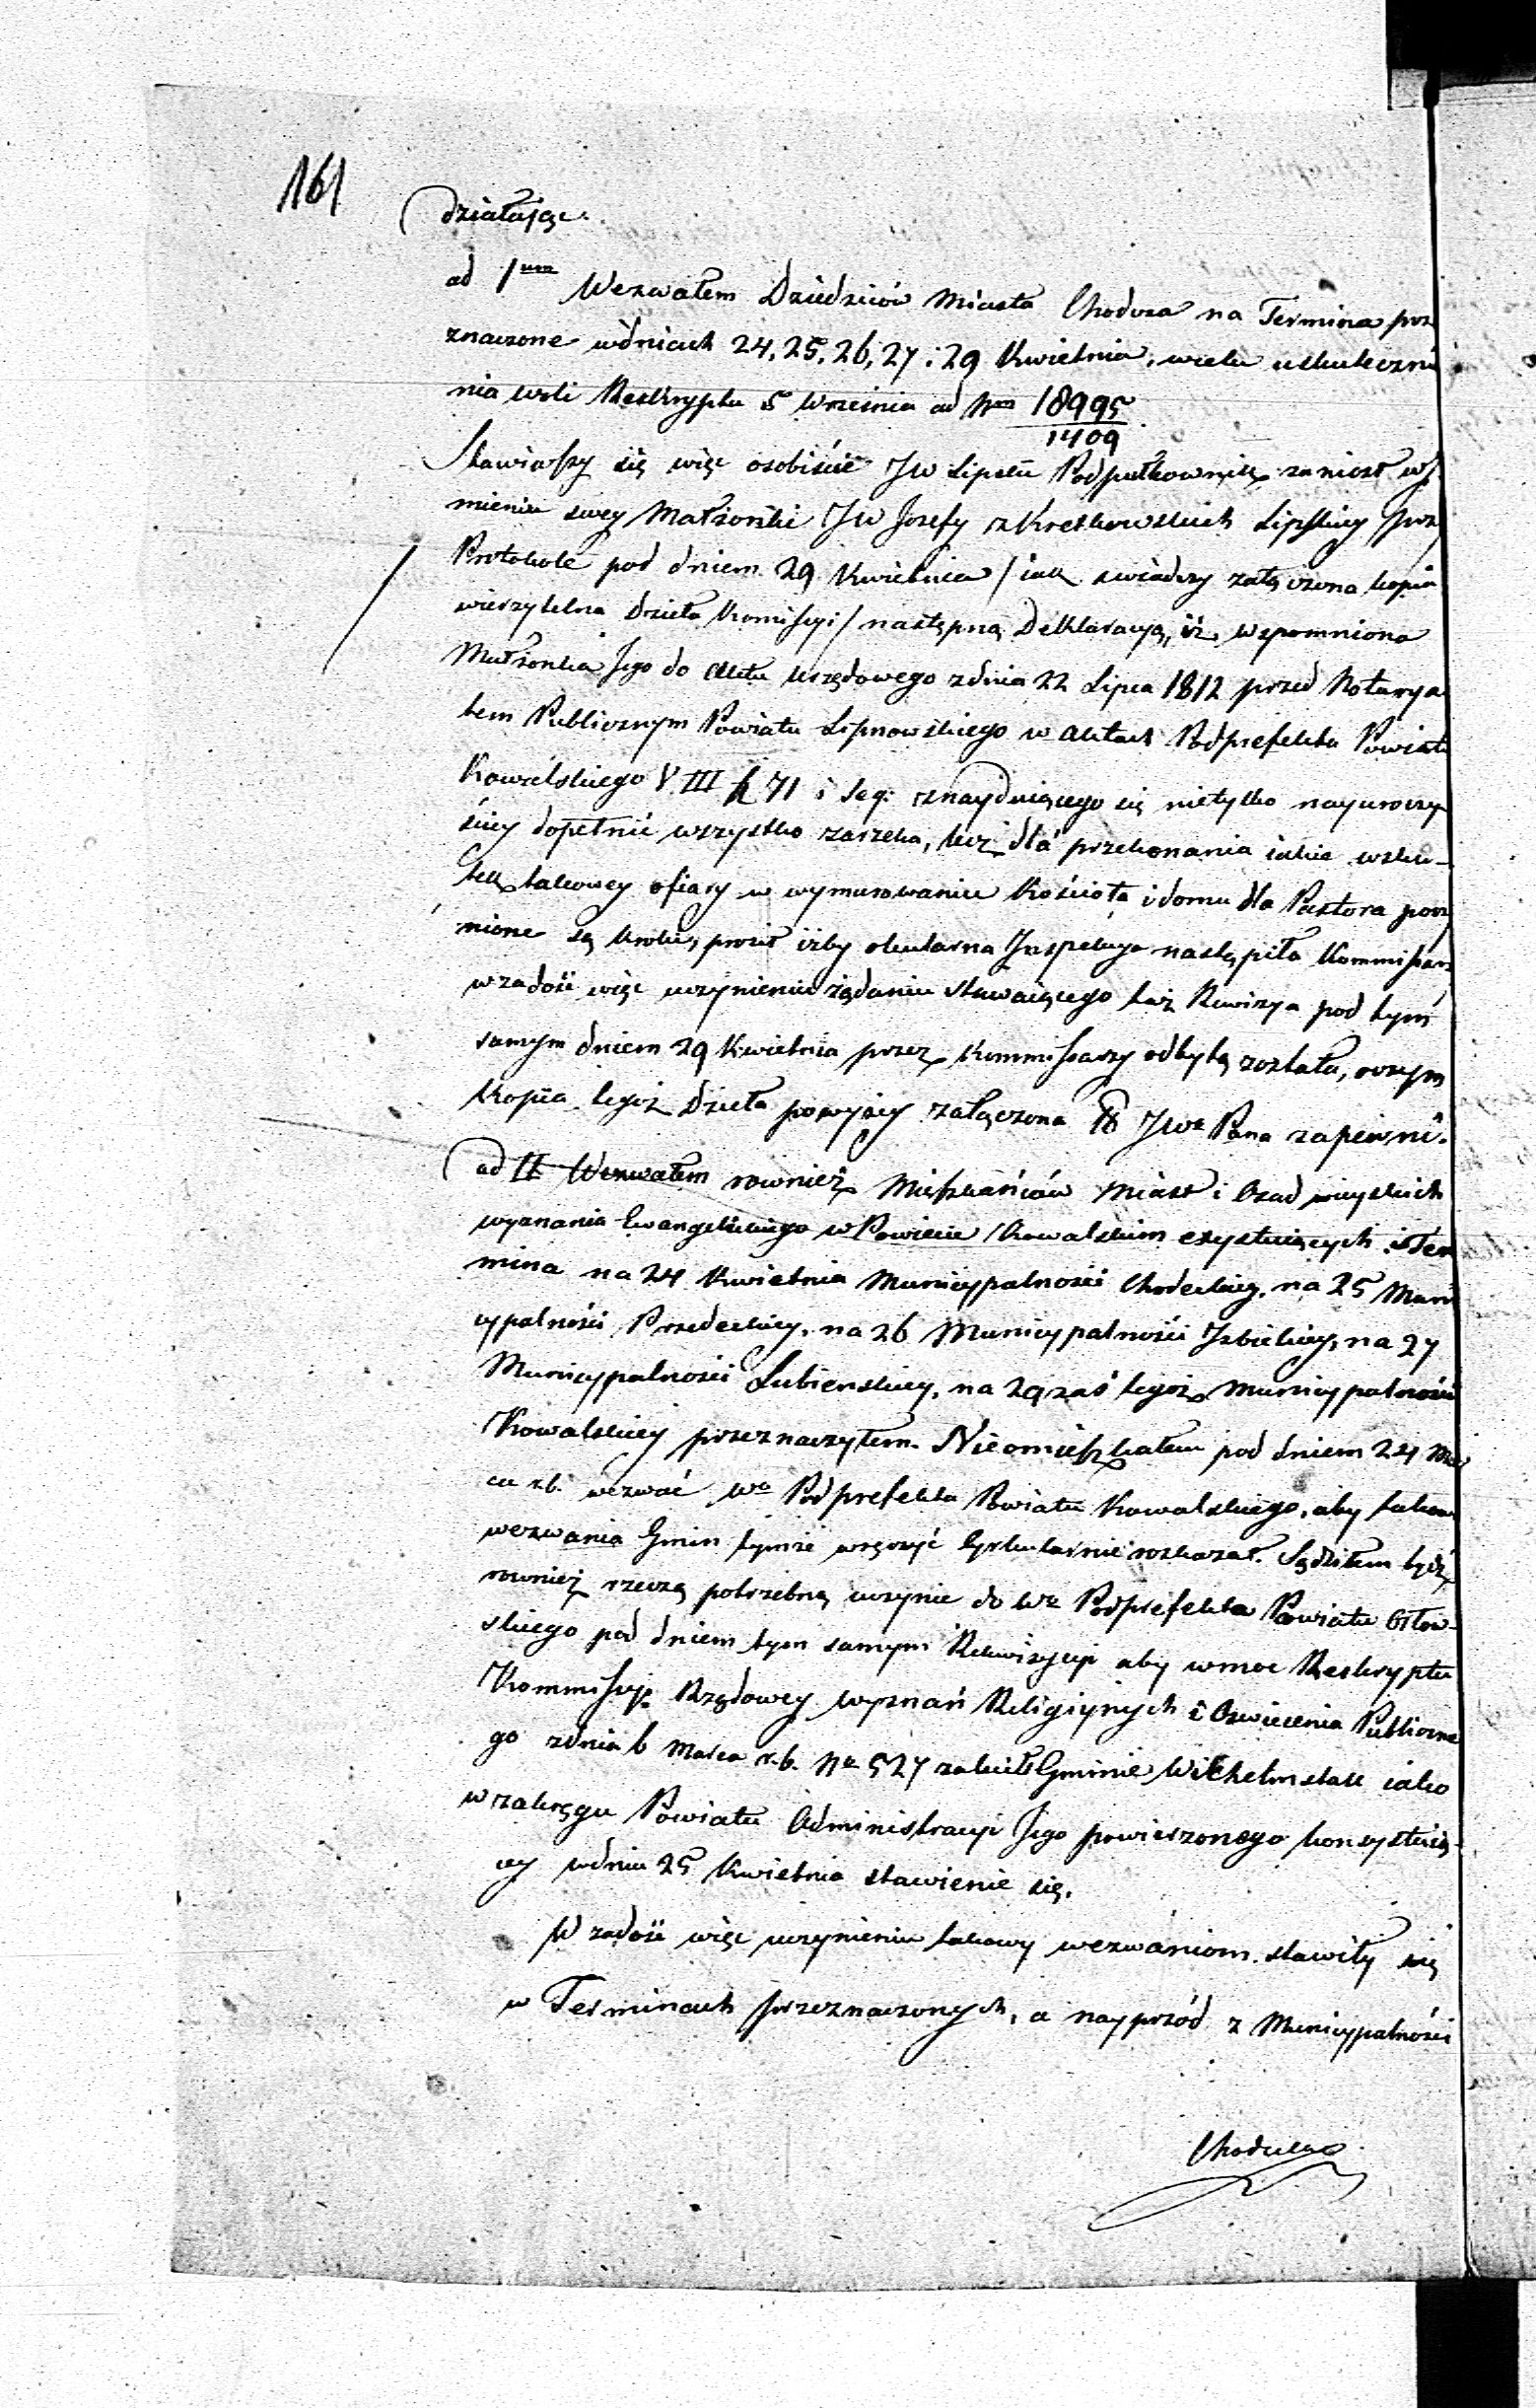 161
działając.
ad 1um Wezwałem Dziedziców Miasta Chodcza na Termina prze
znaczone w dniach 24, 25, 26, 27 i 29 Kwietnia, w celu uskuteczni
nia woli Reskryptu 5 Września ad Nm 18995
1409
Stawiaszy się więc osobiście JW Lipski Podpułkownik zaniosł w J
mieniu swey Małżonki JW Jozefy z Kretkowskich Lipskiey przy
Protokole pod dniem 29 Kwietnia / iak swiadczy załączona kopia
wierzytelna dzieła Komissyi / następną Deklaracyą, iż wspomniona
Małżonka Jego do Aktu Urzędowego z dnia 22 Lipca 1812 przed Notarya
tem Publicznym Powiatu Lipnowskiego w Aktach Podprefekta Powiatu
Kowalskiego V III f 71 i seq: znayduiącego się nietylko nayuroczy
ściey dopełnić wszystko zarzeka, lecz dla przekonania iakie w sku-
tek takowey ofiary w wymurowaniu Kościoła i domu dla Pastora poczy
nione są kroki, prosił iżby okularna Jnspekcya nastąpiła Kommissarz
w zadość więc uczynieniu żądaniu stawaiącego taż Rewizya pod tym
samym dniem 29 Kwietnia przez Kommissarzy odbytą została, o czym
Kopia tegoż Dzieła powyżey załączona JWo Pana zapewni.
ad II Wezwałem rownież Mieszkańców Miast i Osad wieyskich
wyznania Ewangelickiego w Powiecie Kowalskim exystuiących i Ter
mina na 24 Kwietnia Municypalności Chodeckiey, na 25 Muni
cypalności Przedeckiey, na 26 Municypalności Jzbickiey, na 27
Municypalności Lubienskiey, na 29 zaś tegoż Municypalności
Kowalskiey przeznaczyłem. Nieomieszkałem pod dniem 24 Mar
ca r.b. wezwać Wo Podprefekta Powiatu Kowalskiego, aby takowe
wezwania Gmin tymże wręczyć Cyrkularnie rozkazał. Sądziłem bydź
rownież rzeczą potrzebną uczynić do Wo Podprefekta Powiatu Orłow-
skiego pod dniem tym samym Rekwizycyi aby w moc Reskryptu
Kommissyi Rządowey Wyznań Religiynych i Oswiecenia Publiczne
go z dnia 6 Marca r.b. No 527 zalecił Gminie Wilhelmstall iako
w zakręgu Powiatu Administracyi Jego powierzonego konsystuią-
cey w dniu 25 Kwietnia stawienie się.
W zadość więc uczynieniu takowy wezwaniom stawiły się
w Terminach przeznaczonych, a nayprzód z Municypalności